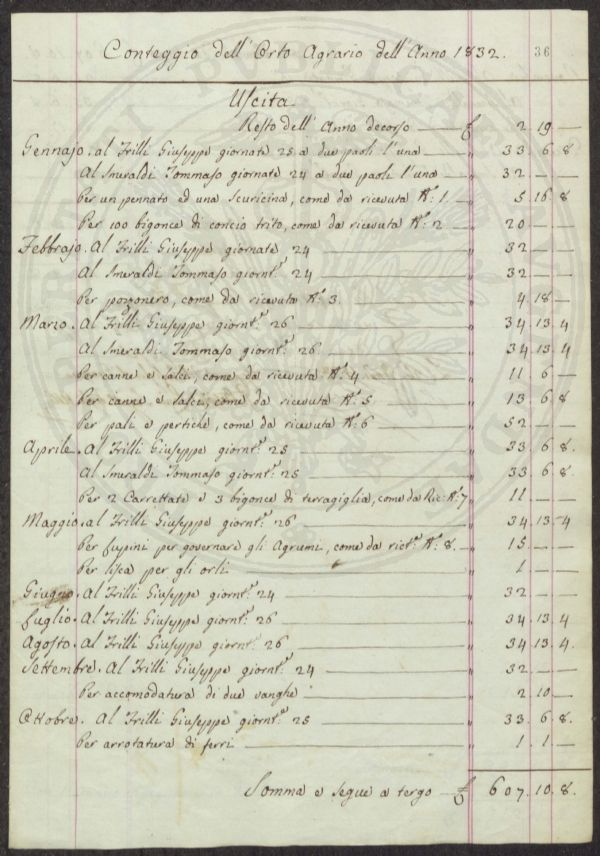 Conteggio dell'Orto Agrario dell'Anno 1832. 36
Uscita
Resto dell'Anno decorso £ 2 19 —
Gennajo. al Frilli Giuseppe giornate 25 a due paoli l'una " 33. 6. 8
Al Smeraldi Tommaso giornate 24 a due paoli l'una " 32 — —
Per un pennato ed una scuricina, come da ricevuta N.° 1 " 5 16 8
Per 100 bigonce di concio trito, come da ricevuta N.° 2 " 20 — —
Febbrajo. Al Frilli Giuseppe giornate 24 " 32 — —
Al Smeraldi Tommaso giornt.e 24 " 32 — —
Per pozzonero, come da ricevuta N.° 3 " 4. 18 —
Marzo. Al Frilli Giuseppe giornt.e 26 " 34. 13. 4
Al Smeraldi Tommaso giornt.e 26 " 34. 13. 4
Per canne e salci, come da ricevuta N.° 4 " 11 6 —
Per canne e salci, come da ricevuta N.° 5 " 13 6 8
Per pali e pertiche, come da ricevuta N.° 6 " 52 — —
Aprile. Al Frilli Giuseppe giornt.e 25 " 33. 6. 8.
Al Smeraldi Tommaso giornt.e 25 " 33 6 8.
Per 2 Carrettate e 3 bigonce di terragiglia, come da Ric: N.° 7 " 11 — —
Maggio. al Frilli Giuseppe giornt.e 26 " 34. 13. 4
Per lupini per governare gli Agrumi, come da ric.t N.° 8. " 15 — —
Per lisca per gli orli " 1 — —
Giugno. al Frilli Giuseppe giornt.e 24 " 32 — —
Luglio. Al Frilli Giuseppe giornt.e 26 " 34. 13. 4
Agosto. Al Frilli Giuseppe giornt.e 26 " 34 13. 4.
Settembre. Al Frilli Giuseppe giornt.e 24 " 32 — —
Per accomodatura di due vanghe " 2 10 —
Ottobre. Al Frilli Giuseppe giornt.e 25 " 33. 6. 8.
Per arrotatura di ferri " 1. 1. —
Somma e segue a tergo £ 607. 10. 8.